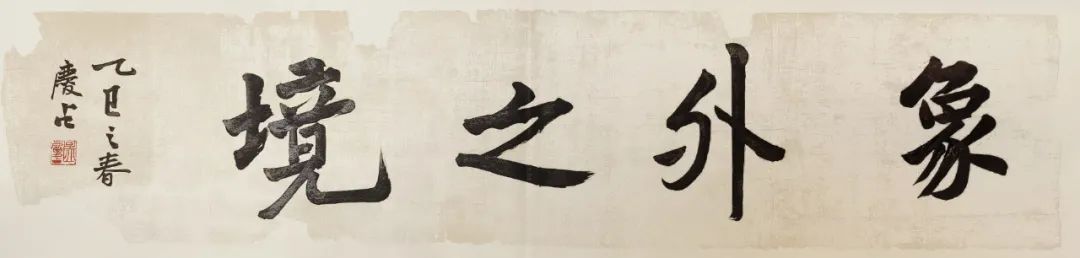 象外之境
乙巳之春
慶占